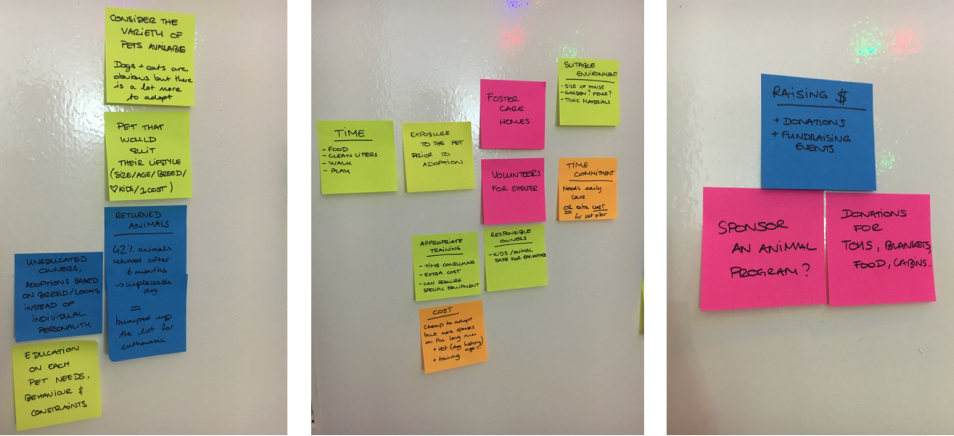 CONSIDER THE
VARIETY OF
PETS AVAILABLE
Dogs + cats are
obvious but there
is a lot more
to adopt
PET THAT
WOULD
SUIT
THEIR LIFSTYLE
(SIZE/AGE/BREED/
♡KIDS/COST)
RETURNED
ANIMALS
42% animals
returned after
6 months
=
bumped up
the list for
euthanasia
UNEDUCATED
OWNERS,
ADOPTIONS BASED
ON BREED/LOOKS
INSTEAD OF
INDIVIDUAL
PERSONALITY
EDUCATION
ON EACH
PET NEEDS,
BEHAVIOUR &
CONSTRAINTS
TIME
- FOOD
- CLEAN LITERS
- WALK
- PLAY
EXPOSURE
TO THE PET
PRIOR TO
ADOPTION
FOSTER
CARE
HOMES
SUITABLE
ENVIRONMENT
- SIZE OF HOUSE
- GARDEN?
- TOXIC MATERIALS
VOLUNTEERS
FOR
TIME
COMMITMENT
Needs daily
care
OR extra COST
for pet sitter
APPROPRIATE
TRAINING
- TIME CONSUMING
- EXTRA COST
- CAN REQUIRE
SPECIFIC EQUIPMENT
RESPONSIBLE
OWNERS
- KIDS/ANIMAL
SAFE FOR EACHOTHER
COST
cheap to adopt
but more expenses
on the long run
+ vet (dog history)
+ training
RAISING $
+ DONATIONS
+ FUNDRAISING
EVENTS
SPONSOR
AN ANIMAL
PROGRAM?
DONATIONS
FOR
TOYS, BLANKETS,
FOOD, CABINS...